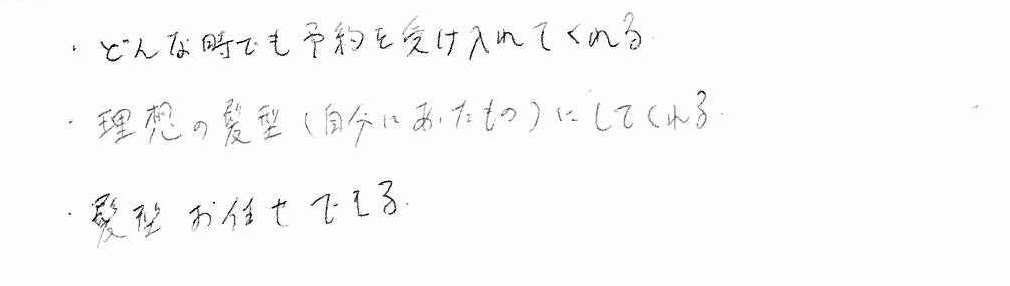 ・どんな時でも予約を受け入れてくれる.
・理想の髪型(自分にあったもの)にしてくれる.
・髪型お任せできる.